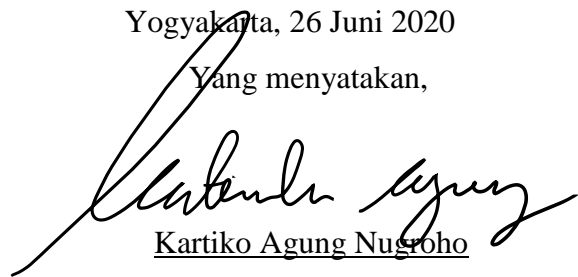 Yogyakarta, 26 Juni 2020
Yang menyatakan,
Kartiko Agung Nugroho